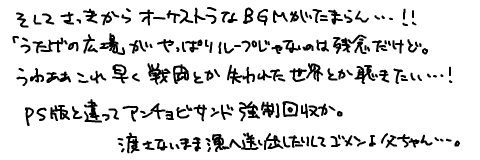 そしてさっきからオーケストラなBGMがたまらん…!!
「うたげの広場」がやっぱりループじゃないのは残念だけど。
うわああこれ早く戦闘とか失われた世界とか聴きたい…!
PS版と違ってアンチョビサンド強制回収か。
渡せないまま漁へ送り出したりしてゴメンよ父ちゃん…。